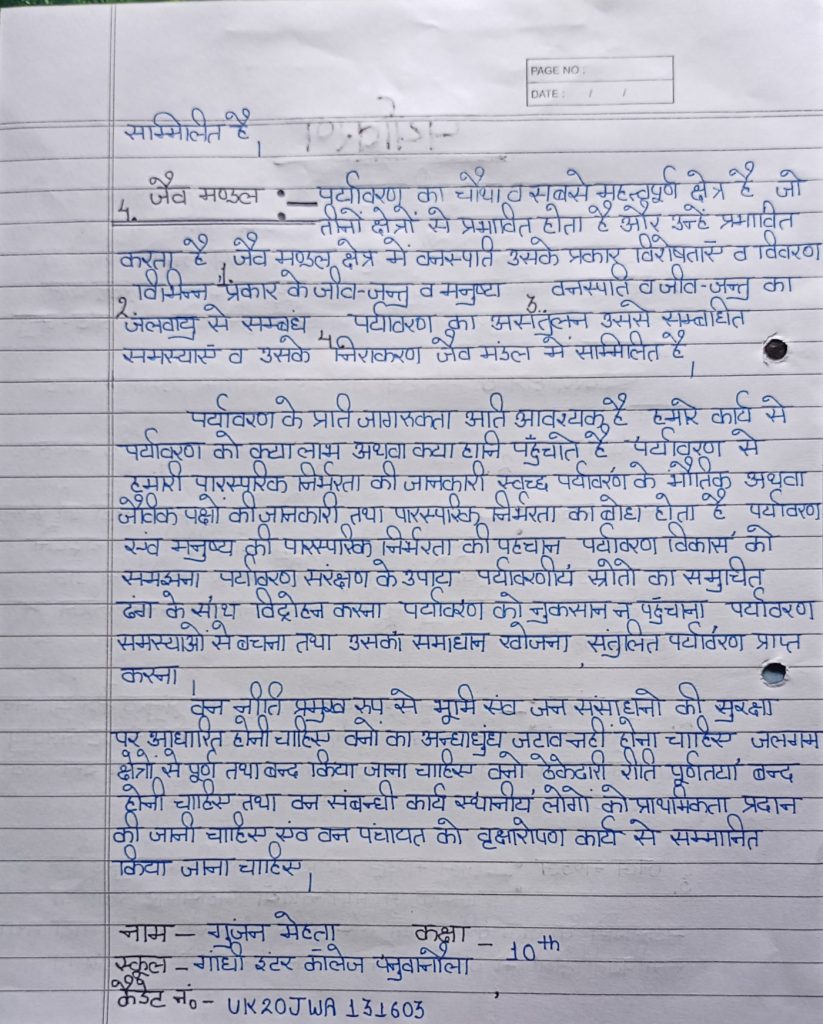 PAGE NO:
DATE: / /
सम्मिलित है।
4. जैव मण्डल :— पर्यावरण का चौथा व सबसे महत्वपूर्ण क्षेत्र है जो
तीनों क्षेत्रों से प्रभावित होता है और उन्हें प्रभावित
करता है जैव मण्डल क्षेत्र में वनस्पति उसके प्रकार विशेषताएँ व विवरण
1 विभिन्न प्रकार के जीव-जन्तु व मनुष्य 3 वनस्पति व जीव-जन्तु का
2. जलवायु से सम्बंध 4 पर्यावरण का असंतुलन उससे सम्बंधित
समस्याएँ व उसके निराकरण जैव मंडल में सम्मिलित है।
पर्यावरण के प्रति जागरुकता अति आवश्यक है हमारे कार्य से
पर्यावरण को क्या लाभ अथवा क्या हानि पहुँचाते है पर्यावरण से
हमारी पारस्परिक निर्भरता की जानकारी स्वच्छ पर्यावरण के भौतिक अथवा
जैविक पक्षो की जानकारी तथा पारस्परिक निर्भरता का बोध होता है पर्यावरण
एवं मनुष्य की पारस्परिक निर्भरता की पहचान पर्यावरण विकास को
समझना पर्यावरण संरक्षण के उपाय पर्यावरणीय स्रोतो का समुचित
ढंग के साथ विदोहन करना पर्यावरण को नुकसान न पहुँचाना पर्यावरण
समस्याओं से बचना तथा उसका समाधान खोजना, संतुलित पर्यावरण प्राप्त
करना।
वन नीति प्रमुख रुप से भूमि एवं जन संसाधनो की सुरक्षा
पर आधारित होनी चाहिए वनों का अन्धाधुंध कटाव नहीं होना चाहिए जलागम
क्षेत्रों से पूर्ण तथा बन्द किया जाना चाहिए वनो ठेकेदारी रीति पूर्णतया बन्द
होनी चाहिए तथा वन संबन्धी कार्य स्थानीय लोगों को प्राथमिकता प्रदान
की जानी चाहिए एवं वन पंचायत को वृक्षारोपण कार्य से सम्मानित
किया जाना चाहिए।
नाम - गुंजन मेहता कक्षा - 10th
स्कूल - गांधी इंटर कॉलेज पनुवानौला,
कैडेट नं० - UK20JWA131603